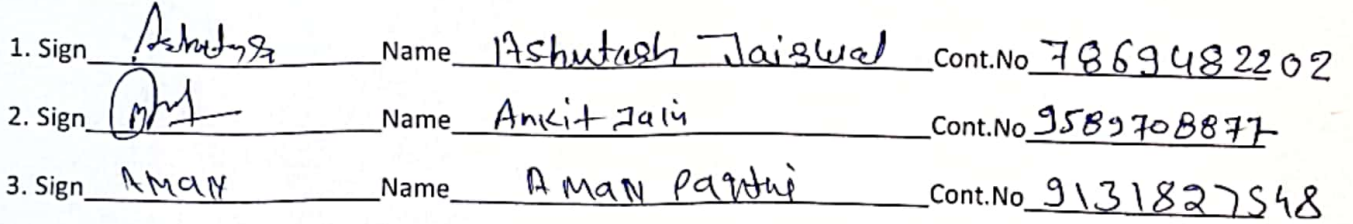 1. Sign Ashutosh Name Ashutosh Jaiswal Cont.No 7869482202
2. Sign Name Ankit Jain Cont.No 9589708877
3. Sign AMAN Name AMAN Panthi Cont.No 9131827548